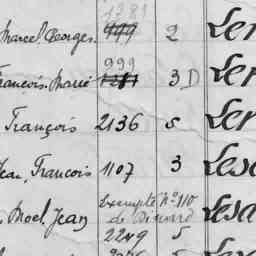 1281
Marcel Georges. 999 2 Ler
999
François Marie 1281 3 D Ler
François 2136 5 Ler
Jean, François 1107 3 Lesc
Exempté N° 110
Noel, Jean de Dinard Lesc
2249 5